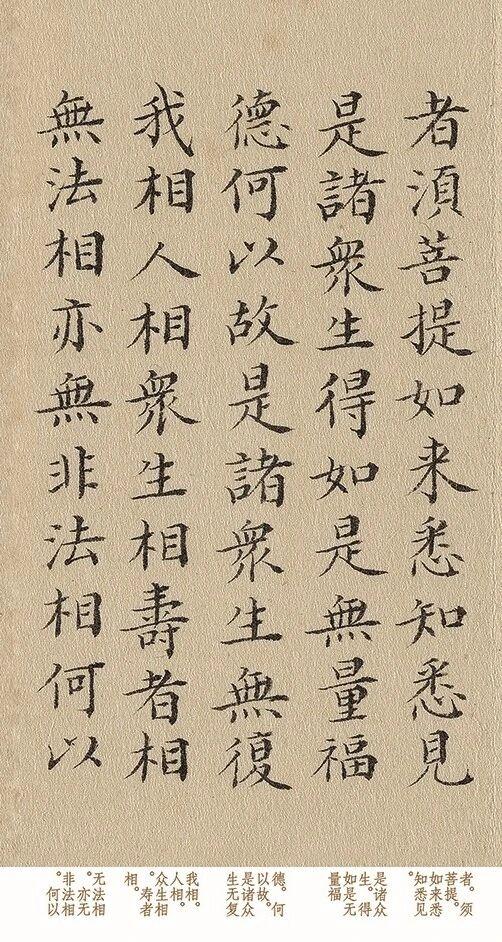 者湏菩提如来悉知悉見
是諸衆生得如是無量福
德何以故是諸衆生無復
我相人相衆生相壽者相
無法相亦無非法相何以
者。须
菩提。
如来悉
知悉见
是诸众
生。得
如是无
量福
德。何
以故。
是诸众
生无复
我相。
人相。
众生相
。寿者
相。
无法相
。亦无
非法相
。何以